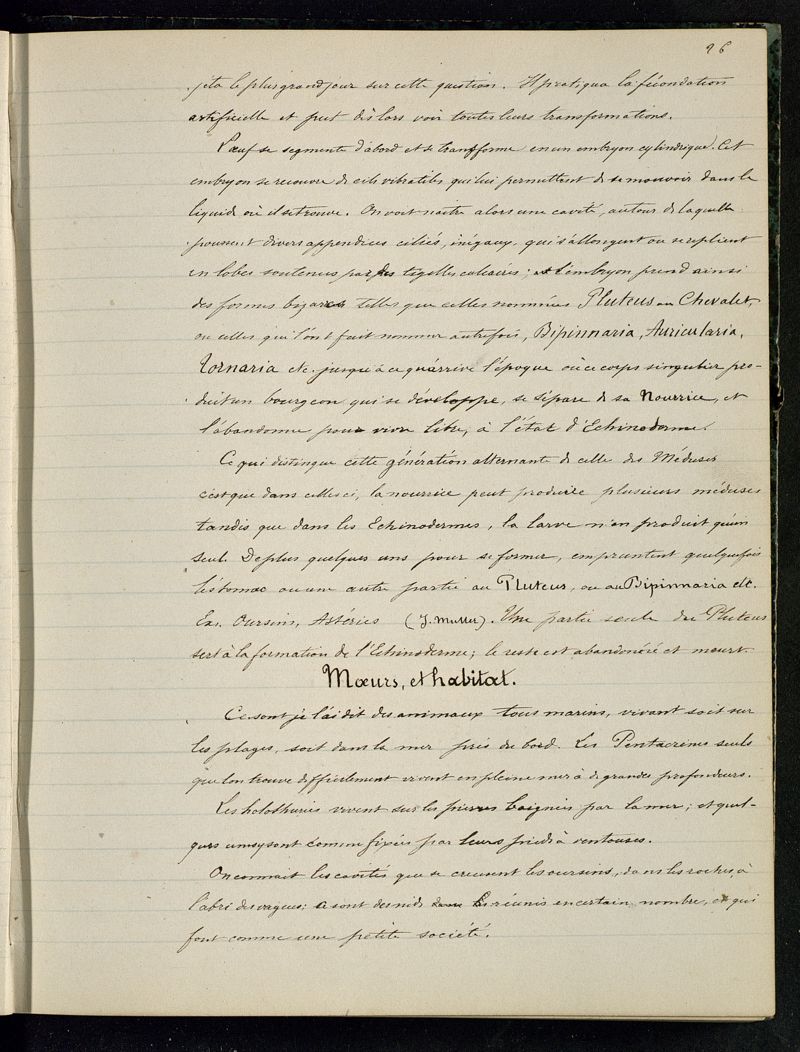 96
jeta le plus grand jour sur cette question. Il pratiqua la fécondation
artificielle et put dès lors voir toutes leurs transformations.
L'œuf se segmente d'abord et se transforme en un embryon cylindrique. Cet
embryon se recouvre de cils vibratiles qui lui permettent de se mouvoir dans le
liquide où il se trouve. On voit naître alors une cavité, autour de laquelle
poussent divers appendices ciliés, inégaux, qui s'allongent ou se replient
en lobes soutenus par des tigelles calcaires; et l'embryon prend ainsi
des formes bizares telles que celles nommées Pluteus ou Chevalet,
ou celles qui l'ont fait nommer autrefois, Bipinnaria, Auricularia,
Tornaria etc. jusqu'à ce qu'arrive l'époque où ce corps singulier pro-
duit un bourgeon qui se développe, se sépare de sa Nourrice, et
l'abandonne pour vivre libre, à l'état d'Echinoderme.
Ce qui distingue cette génération alternante de celle des Méduses
c'est que dans celles ci, la nourrice peut produire plusieurs méduses
tandis que dans les Echinodermes, la larve n'en produit qu'un
seul. De plus quelques uns pour se former, empruntent quelquefois
l'estomac ou une autre partie au Pluteus, ou au Bipinnaria etc.
Ex. Oursins, Astéries (J. Muller). Une partie seule du Pluteus
sert à la formation de l'Echinoderme; le reste est abandonné et meurt.
Mœurs, et habitat.
Ce sont je l'ai dit des animaux tous marins, vivant soit sur
les plages, soit dans la mer près du bord. Les Pentacrines seuls
que l'on trouve difficilement vivent en pleine mer à de grandes profondeurs.
Les holothuries vivent sur les pierres baignées par la mer; et quel-
ques uns y sont comme fixés par leurs pieds à ventouses.
On connait les cavités que se creusent les oursins, dans les roches, à
l'abri des vagues; ce sont des nids réunis en certain nombre, et qui
font comme une petite société.